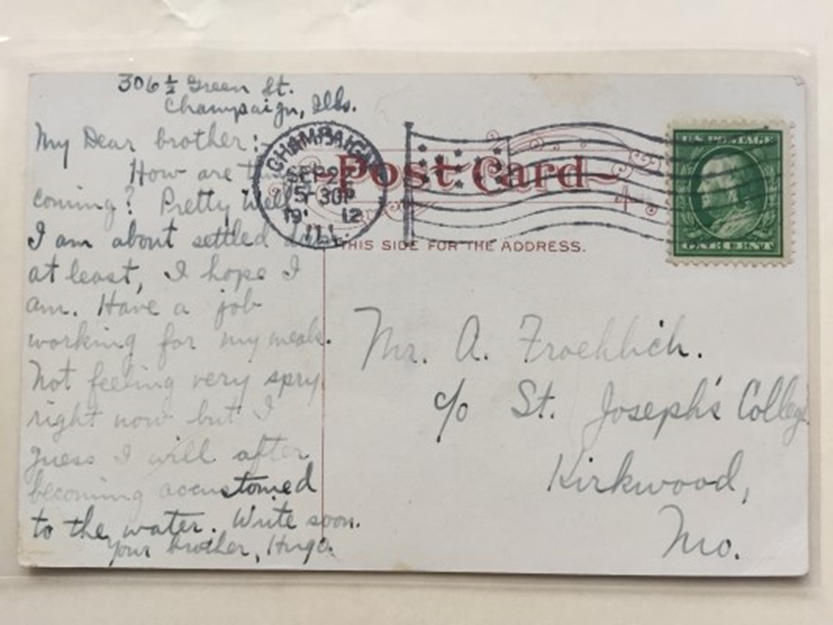 306 ½ Green St.
Champaign, Ills.
My Dear brother:
How are
coming? Pretty well
I am about settled
at least, I hope I
am. Have a job
working for my meals.
Not feeling very spry
right now but I
guess I will after
becoming accustomed
to the water. Write soon.
Your brother, Hugo.
CHAMPAIGN
SEP 2
5 30P
19 12
ILL.
Post Card
THIS SIDE FOR THE ADDRESS.
U.S. POSTAGE
ONE CENT
Mr. A. Froehlich.
c/o St. Joseph's College
Kirkwood,
Mo.